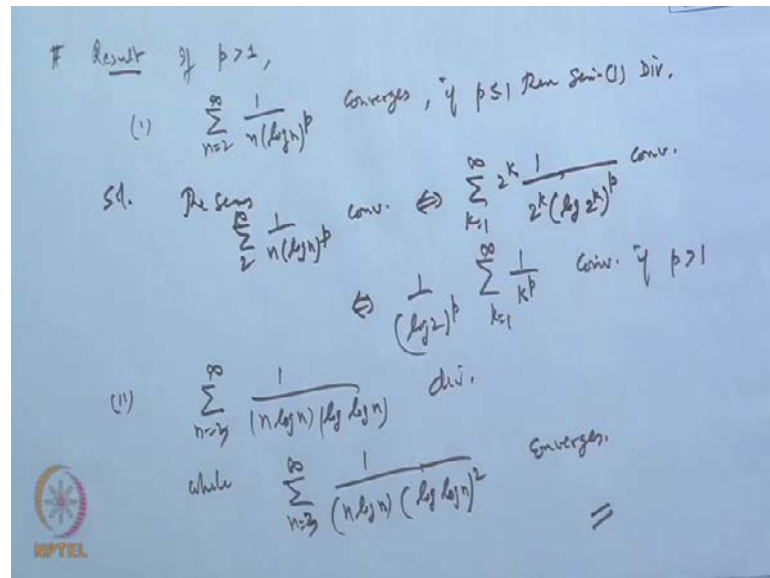 # Result If p>1,
(i) \sum_{n=2}^{\infty} \frac{1}{n(\log n)^p} Converges, if p≤1 then Series (1) Div.
Sol. The Series \sum_{2}^{\infty} \frac{1}{n(\log n)^p} conv. ⇔ \sum_{k=1}^{\infty} 2^k \cdot \frac{1}{2^k (\log 2^k)^p} conv.
⇔ \frac{1}{(\log 2)^p} \sum_{k=1}^{\infty} \frac{1}{k^p} Conv. if p>1
(ii) \sum_{n=3}^{\infty} \frac{1}{(n \log n)(\log \log n)} div.
while \sum_{n=3}^{\infty} \frac{1}{(n \log n)(\log \log n)^2} Converges.
NPTEL